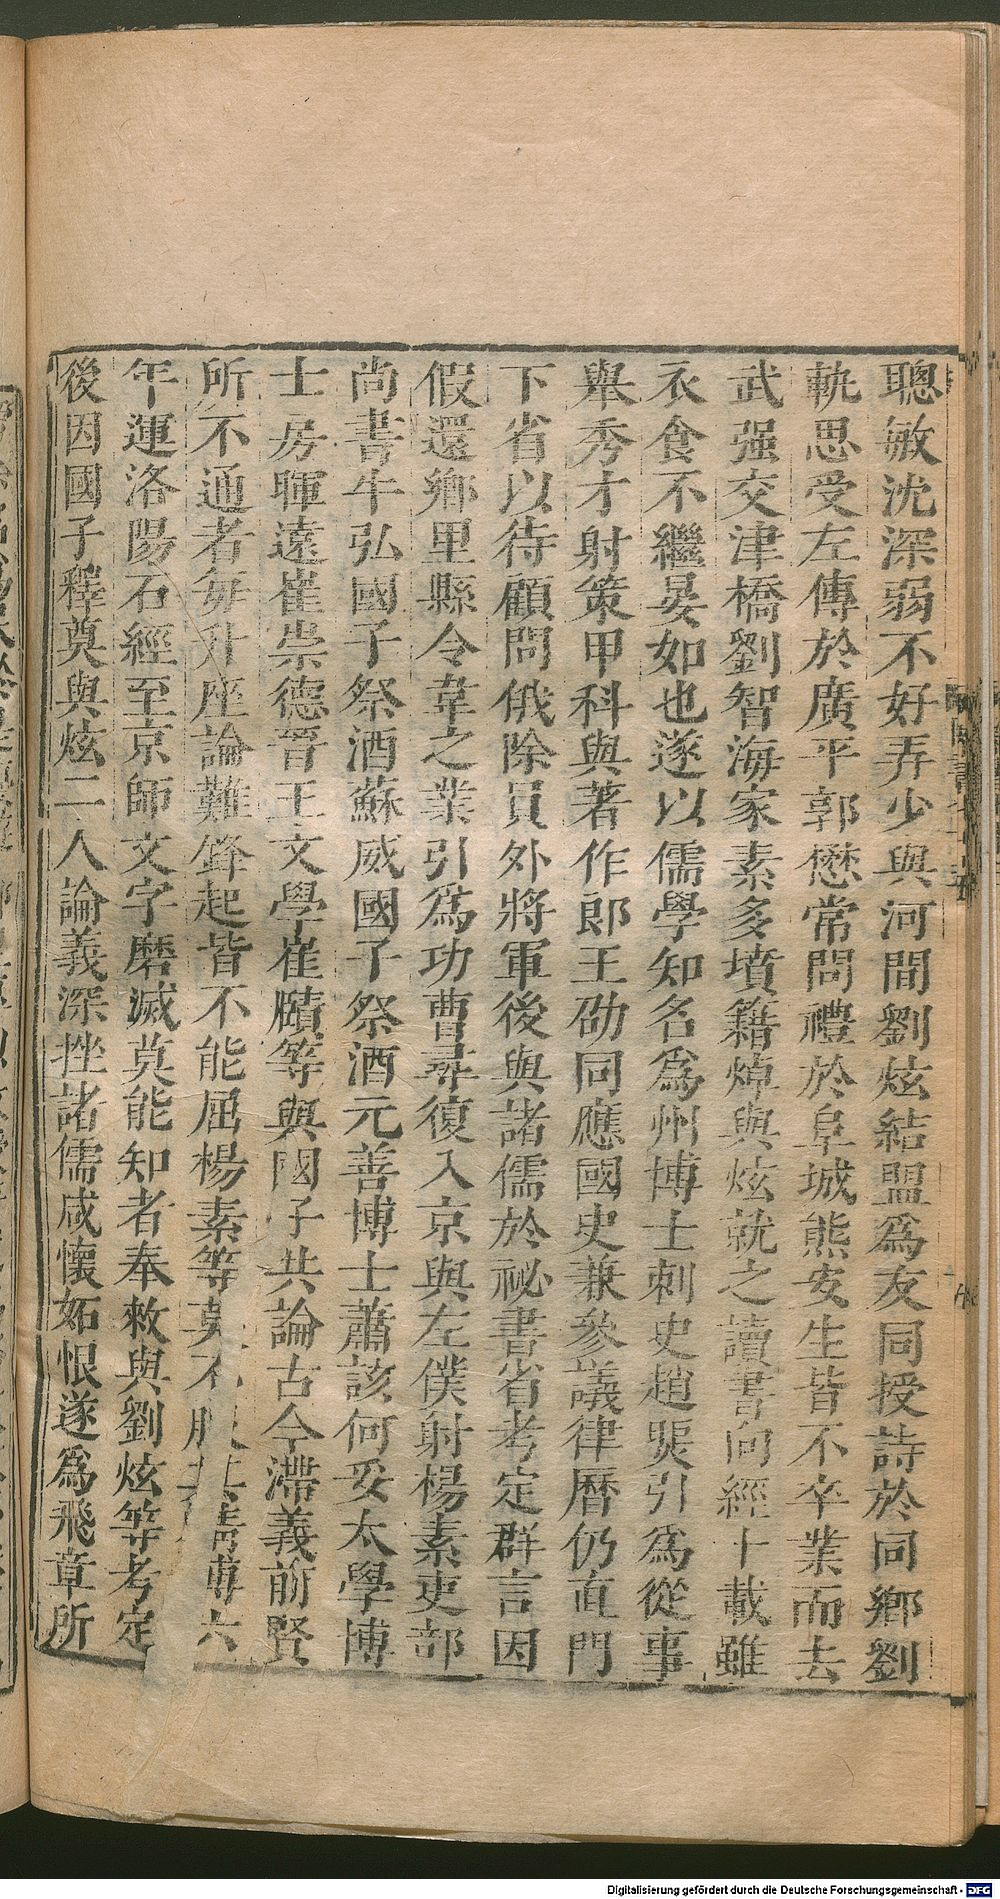 聰敏沈深弱不好弄少與河間劉炫結盟爲友同授詩於同鄉劉
軌思受左傳於廣平郭懋常問禮於阜城熊安生皆不卒業而去
武强交津橋劉智海家素多墳籍焯與炫就之讀書向經十載雖
衣食不繼晏如也遂以儒學知名爲州博士刺史趙煚引爲從事
舉秀才射策甲科與著作郎王劭同應國史兼參議律曆仍直門
下省以待顧問俄除員外將軍後與諸儒於祕書省考定群言因
假還鄉里縣令韋之業引爲功曹尋復入京與左僕射楊素吏部
尚書牛弘國子祭酒蘇威國子祭酒元善博士蕭該何妥太學博
士房暉遠崔崇德晉王文學崔賾等與國子共論古今滯義前賢
所不通者每升座論難鋒起皆不能屈楊素等莫不服其精博六
年運洛陽石經至京師文字磨滅莫能知者奉敕與劉炫等考定
後因國子釋奠與炫二人論義深挫諸儒咸懷妬恨遂爲飛章所
Digitalisierung gefördert durch die Deutsche Forschungsgemeinschaft - DFG